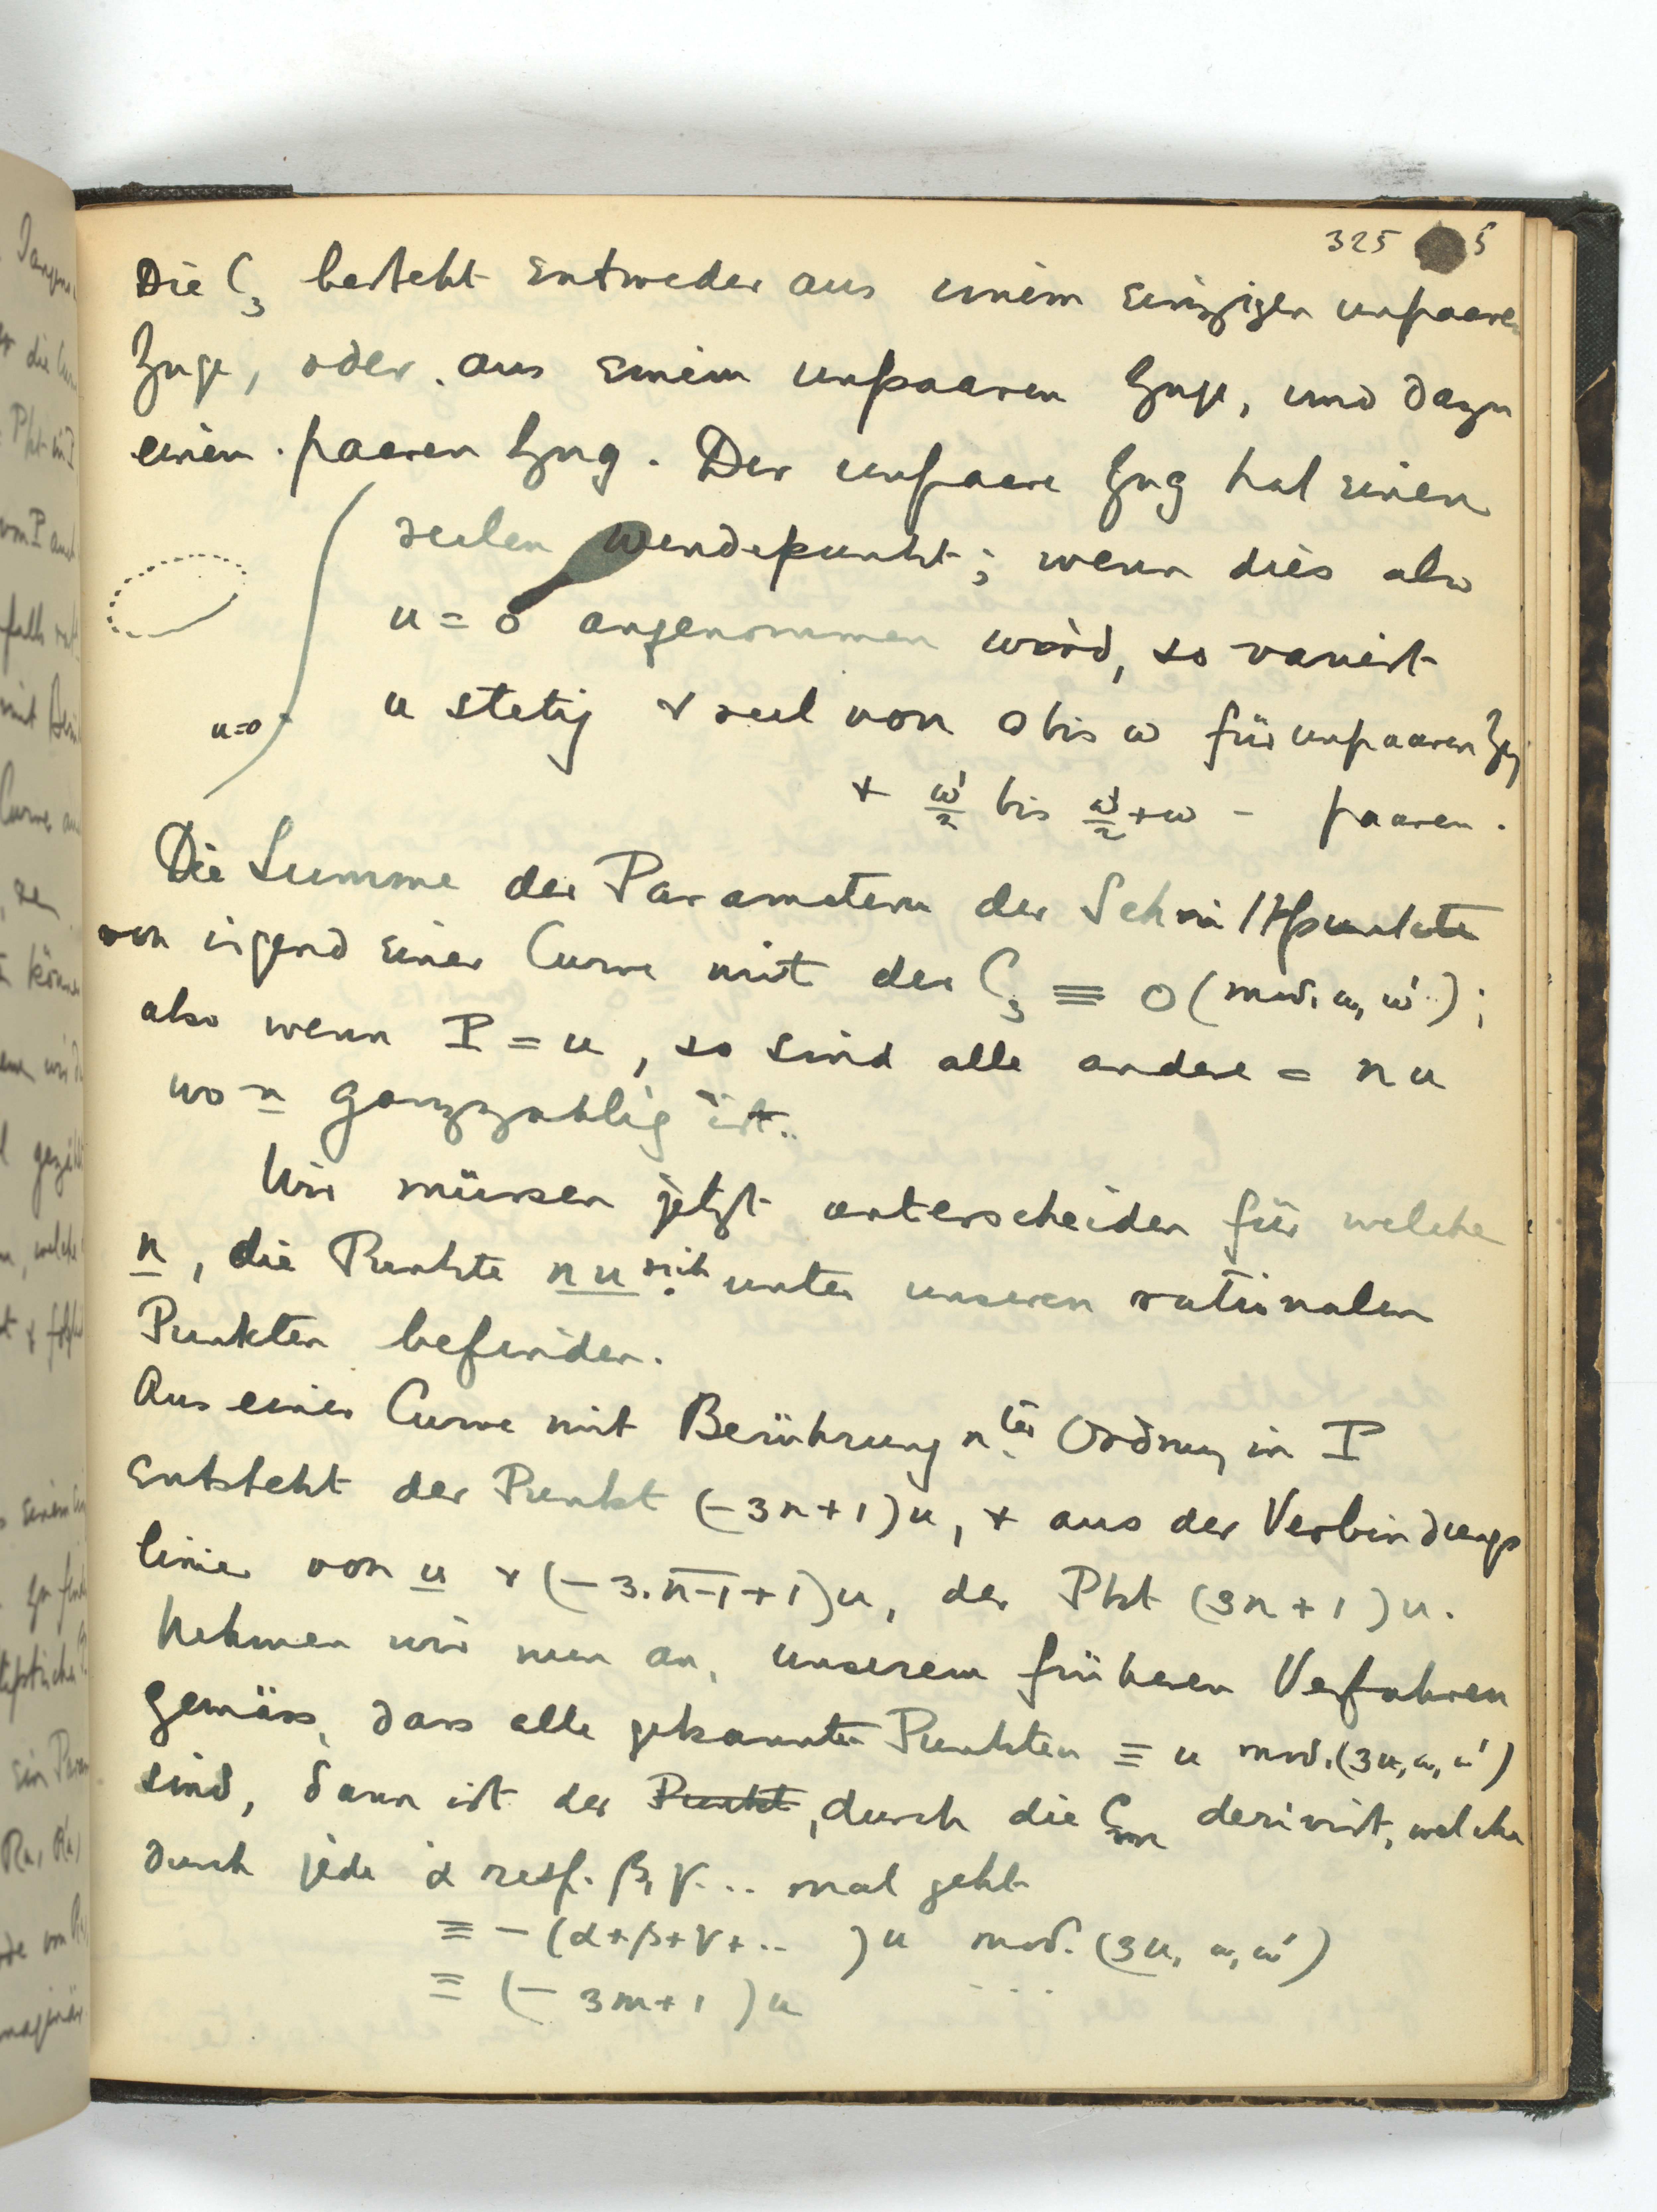 325 5
Die C₃ besteht entweder aus einem einzigen unpaaren
Zuge, oder aus einem unpaaren Zuge, und dazu
einen paaren Zug. Der unpaare Zug hat einen
reelen Wendepunkt; wenn dies also
u = 0 angenommen wird, so variirt
u stetig + reel von 0 bis ω für unpaaren Zug
u=0
+ ω'/2 bis ω'/2+ω - paaren.
Die Summe der Parametern der Schnittpunkte
von irgend einer Curve mit der C₃ ≡ 0 (mod. ω, ω');
also wenn I = u, so sind alle andere = nu
wo n ganzzahlig ist.
Wir müssen jetzt unterscheiden für welche
n, die Punkte nu sich unter unseren rationalen
Punkten befinden.
Aus einer Curve mit Berührung nter Ordnung in I
entsteht der Punkt (-3n+1)u, + aus der Verbindungs
linie von u + (-3.n-1+1)u, der Pkt (3n+1)u.
Nehmen wir nun an, unserem früheren Verfahren
gemäss, dass alle gekannten Punkten ≡ u mod.(3u, ω, ω')
sind, dann ist der Punkt, durch die Cm derivirt, welche
durch jede α resp. β, γ... mal geht
≡ -(α+β+γ+.. )u mod. (3u, ω, ω')
≡ (-3m+1)u . . .